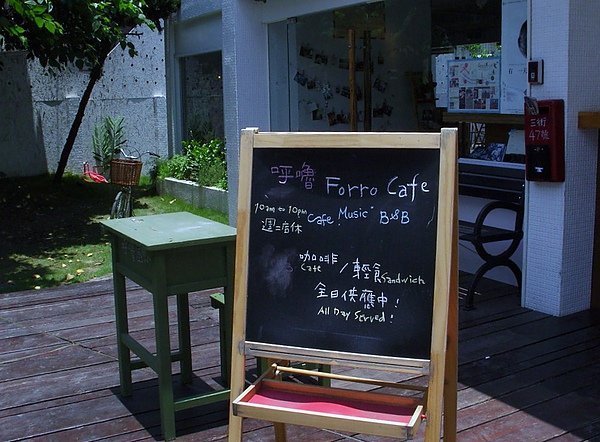 呼嚕 Forro Cafe
10am to 10pm
Cafe. Music B&B
週二店休
咖啡 / 輕食
Cafe Sandwich
全日供應中!
All Day Served!
三街
47號